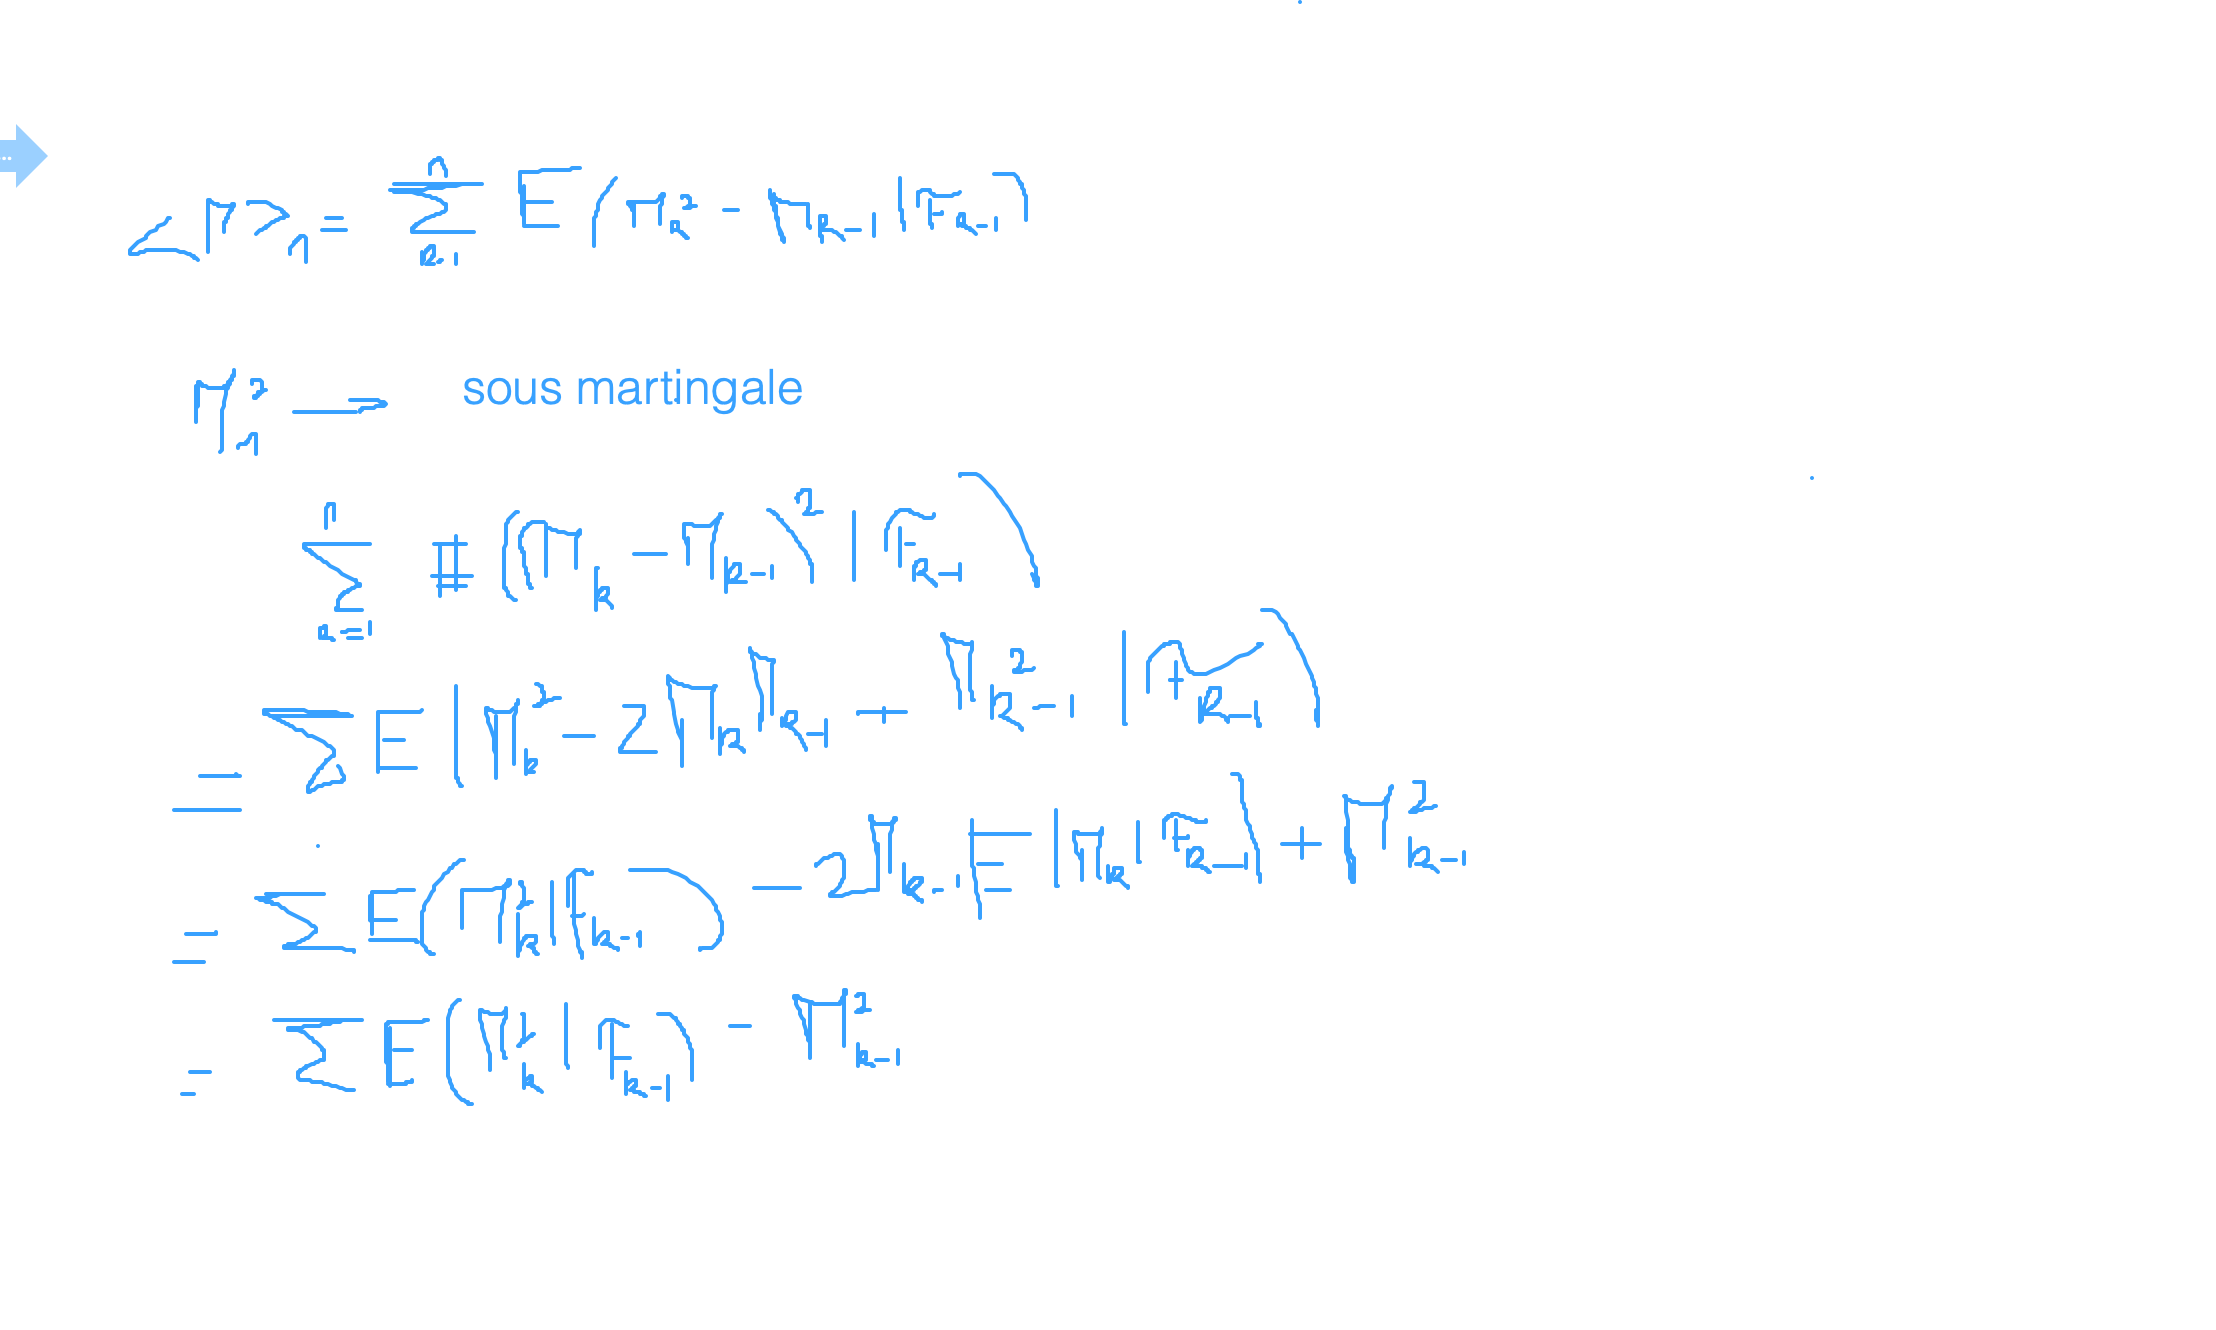 <M>_n = Σ_{k=1}^n E(M_k^2 - M_{k-1} | F_{k-1})
M_n^2 → sous martingale
Σ_{k=1}^n E((M_k - M_{k-1})^2 | F_{k-1})
= Σ E(M_k^2 - 2M_k M_{k-1} + M_{k-1}^2 | F_{k-1})
= Σ E(M_k^2 | F_{k-1}) - 2M_{k-1} E(M_k | F_{k-1}) + M_{k-1}^2
= Σ E(M_k^2 | F_{k-1}) - M_{k-1}^2